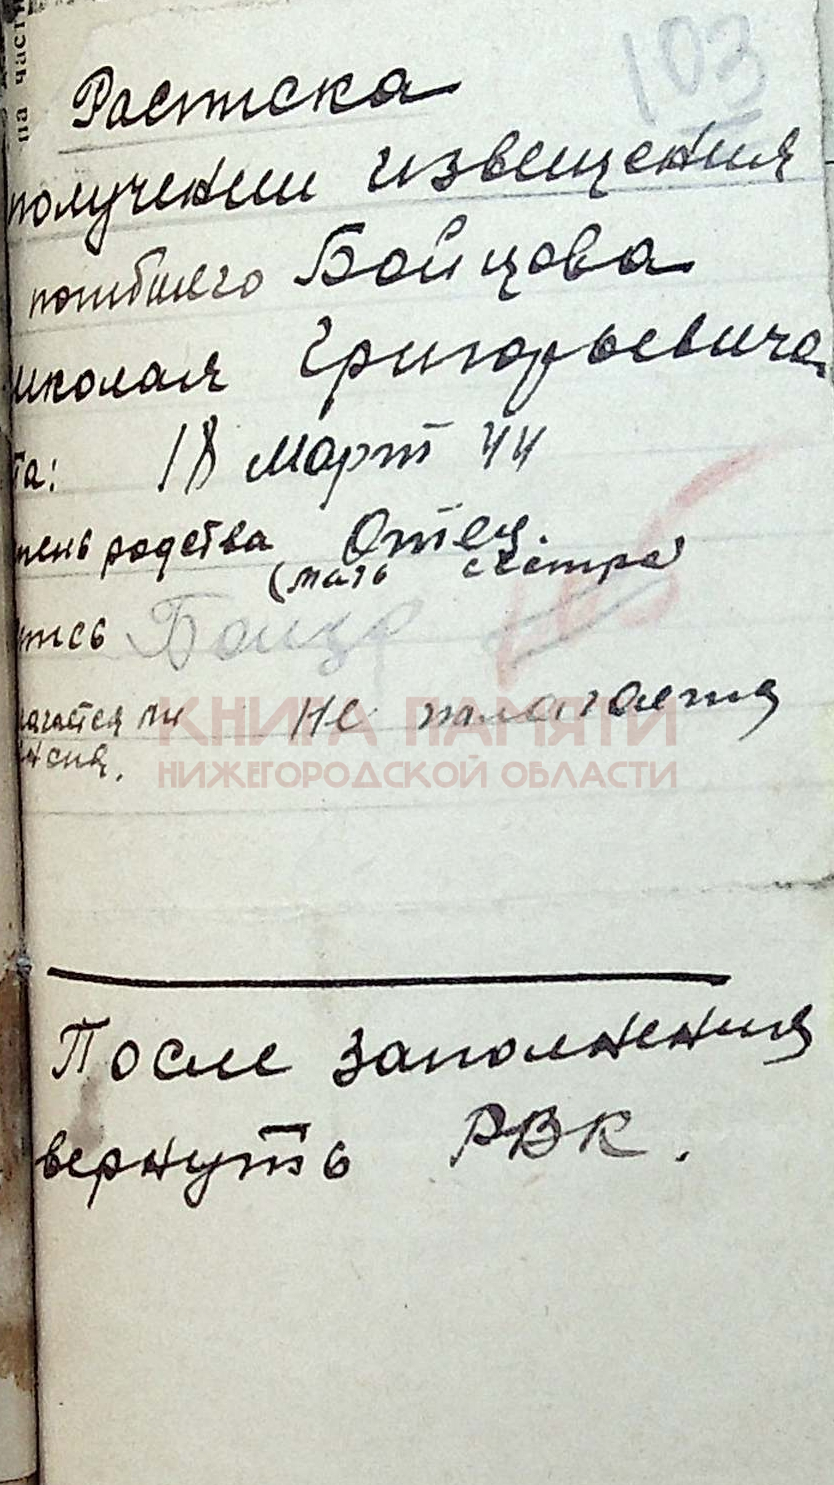 на части
103
Растска
получении извещения
погибшего Бойцова
иколая Григорьевича
та: 18 Март 44
пень родства Отец.
(мать сестра)
105
пись Бойцо
лагается ли не полагается
нсия.
КНИГА ПАМЯТИ
НИЖЕГОРОДСКОЙ ОБЛАСТИ
После заполнения
вернуть РВК.